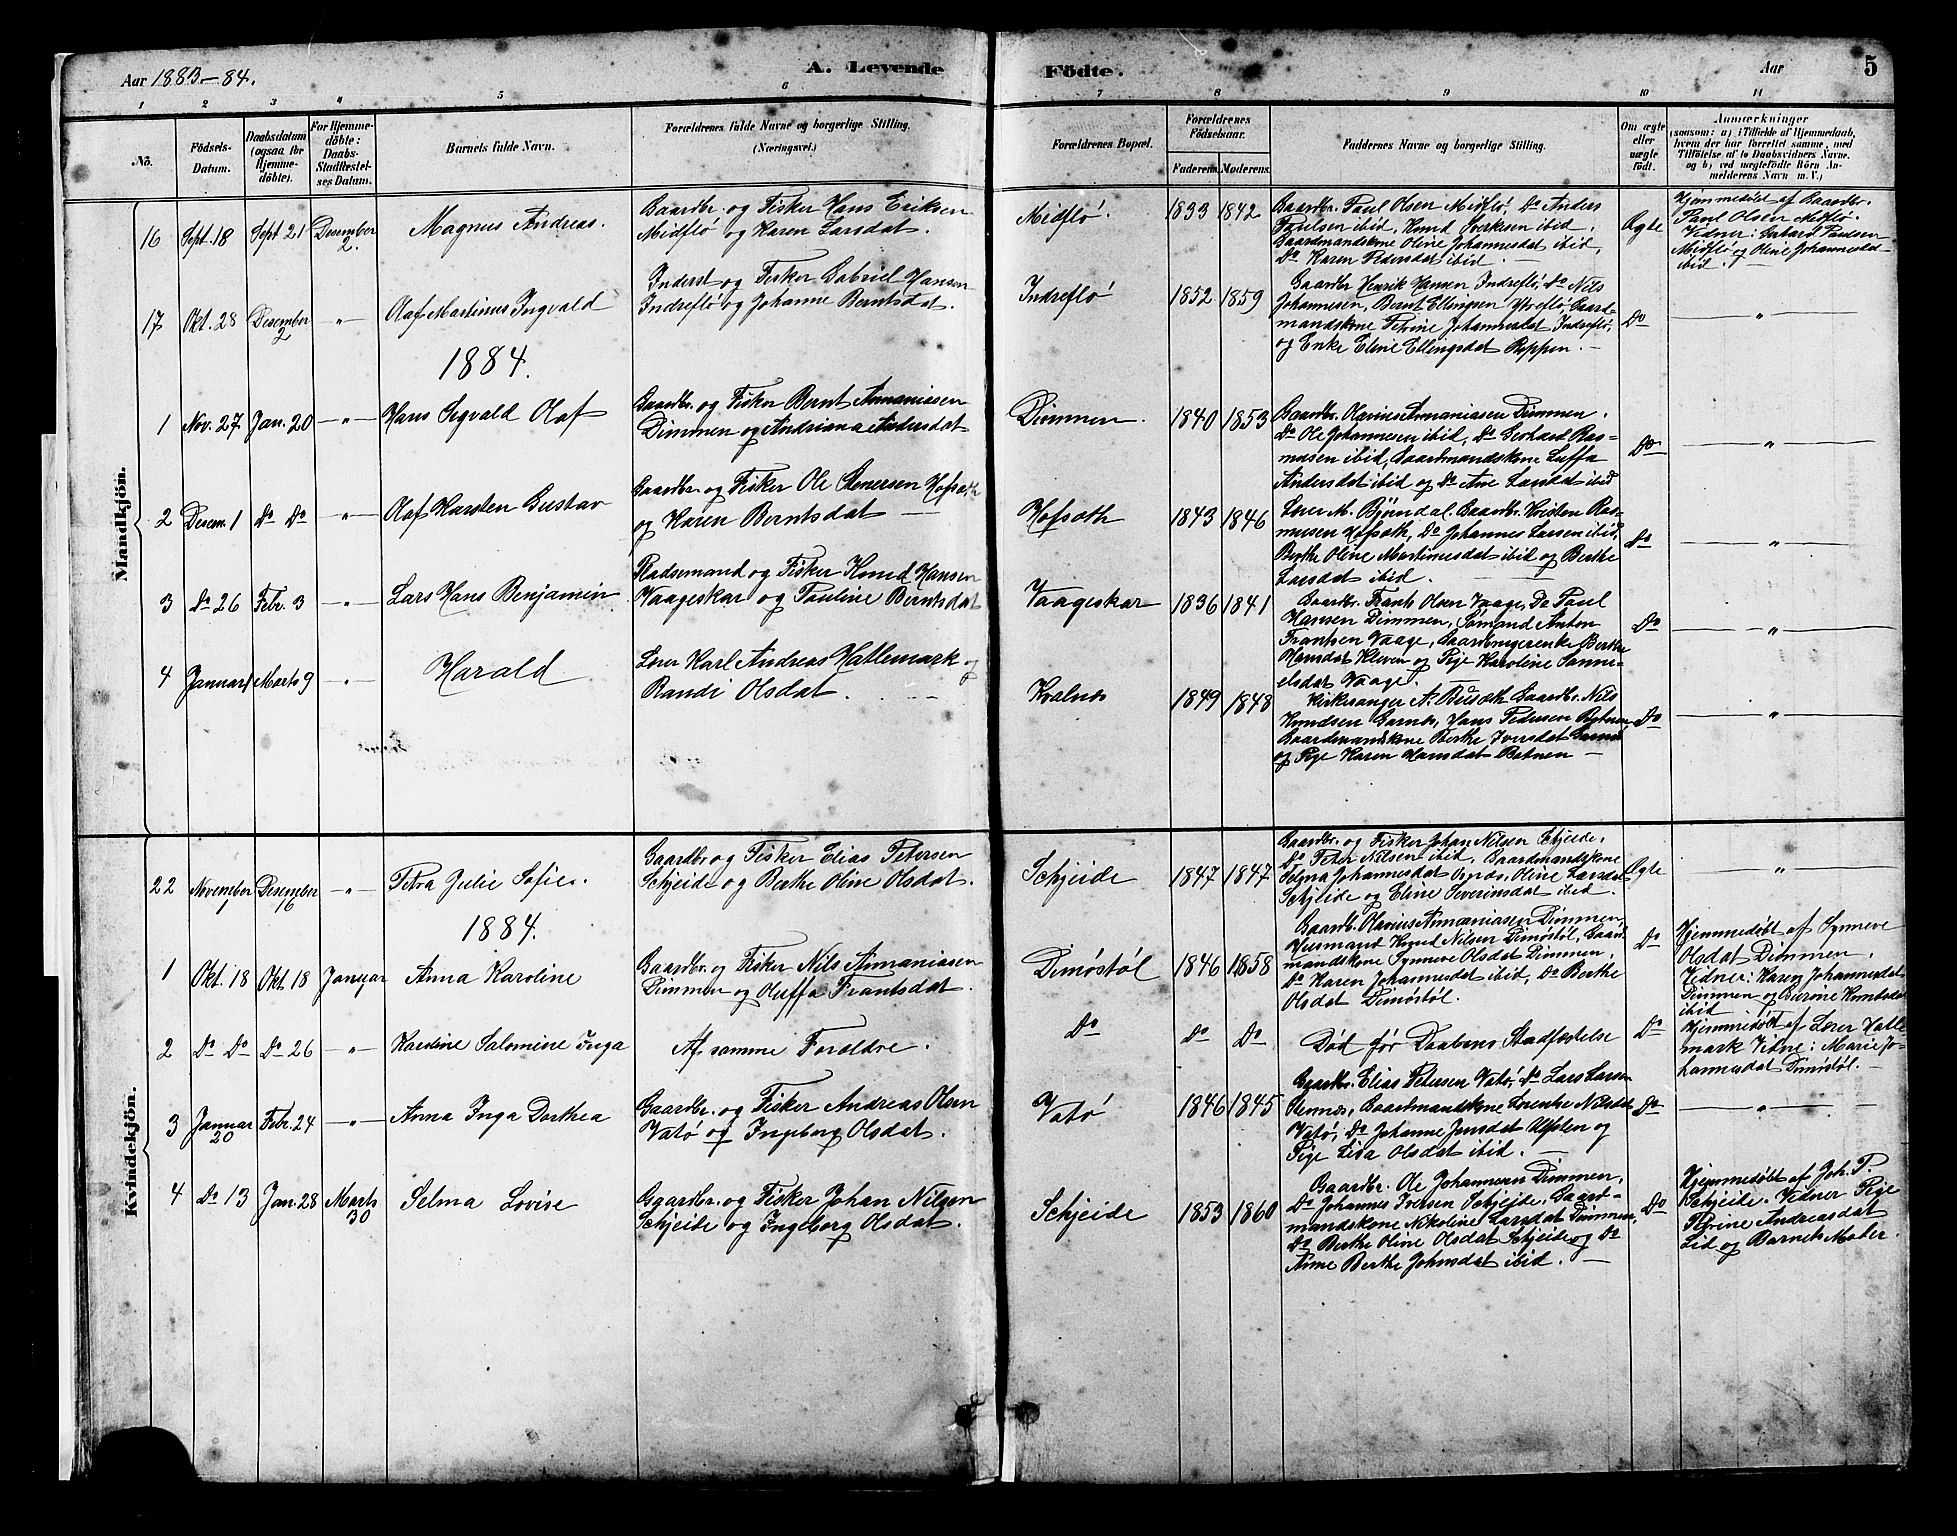 Aar 1883-84.
A. Levende Födte.
Aar
5
1 2 3 4 5 6 7 8 9 10 11
No.
Födsels-Datum.
Daabsdatum (ogsaa for Hjemme-döbte).
For Hjemme-döbte: Daabs-Stadfæstel-ses Datum.
Barnets fulde Navn.
Forældrenes fulde Navne og borgerlige Stilling.
(Næringsvei.)
Forældrenes Bopæl.
Forældrenes Födselsaar.
Faderens. Moderens.
Faddernes Navne og borgerlige Stilling.
Om ægte eller uægte födt.
Anmærkninger
(saasom: a) i Tilfælde af Hjemmedaab,
hvem der har forrettet samme, med
Tilföielse af to Daabsvidners Navne,
og b) ved uægtefödte Börn An-
melderens Navn m. V.)
Mandkjön.
16 Sept. 18 Sept 21 Desember 2. Magnus Andreas.
Gaardbr. og Fisker Hans Eriksen
Midflö og Karen Larsdat.
Midflö. 1833 1842
Gaardbr. Paul Olsen Midflö, Do Anders
Paulsen ibid, Knud Sverksen ibid,
Gaardmandskone Oline Johannesdat ibid,
Do Karen Pedersdat ibid.
Ægte
Hjemmedöbt af Gaardbr.
Paul Olsen Midflö.
Vidner: Gerhard Paulsen
Midflö og Oline Johannesdat
ibid.
17 Okt. 28 Desember 2 -"- Olaf Martinus Ingvald
Inderst og Fisker Gabriel Hansen
Indreflö og Johanne Berntsdat.
Indreflö 1852 1859
Gaardbr Henrik Hansen Indreflö, Do Nils
Johannesen, Bernt Ellingsen Ytreflö, Gaard-
mandskone Petrine Johannesdat Indreflö,
og Enke Eline Ellingsdat Roppen.
Do -"-
1884.
1 Nov. 27 Jan. 20 -"- Hans Sigvald Olaf
Gaardbr. og Fisker Bernt Annaniasen
Dimmen og Andriana Andersdat
Dimmen. 1840 1853
Gaardbr. Olavius Annaniasen Dimmen.
Do Ole Johannesen ibid, Do Gerhard Ras-
musen ibid, Gaardmandskone Luffa
Andersdat ibid og Do Ane Larsdat ibid
Do -"-
2 Desem. 1 Do Do -"- Olaf Karsten Gustav
Gaardbr. og Fisker Ole Stenersen Hofsæth
og Karen Berntsdat
Hofsæth 1843 1846
Lærer M. Bjöndal. Gaardbr. Kristen Ras-
musen Hofsæth, Do Johannes Larsen ibid,
Berthe Oline Martinusdat ibid og Berthe
Larsdat ibid.
Do -"-
3 Do 26 Febr. 3 -"- Lars Hans Benjamin
Pladsemand og Fisker Knud Hansen
Vaageskar og Pauline Berntsdat
Vaageskar 1836 1841
Gaardbr. Frants Olsen Vaage, Do Paul
Hansen Dimmen, Sömand Anton
Frantsen Vaage, Gaardbrugerenke Berthe
Hansdat Kleven og Pige Karoline Samu-
elsdat Vaage.
Do -"-
4 Januar 1 Marts 9 -"- Harald
Lærer Karl Andreas Hallemark og
Randi Olsdat.
Kvalnes 1849 1848
Kirkesanger A. Busæth Gaardbr. Nils
Knudsen Garnes, Hans Pedersen Botnen,
Gaardmandskone Berthe Iversdat Garnes
og Pige Karen Hansdat Botnen
Do -"-
Kvindekjön.
22 November 1 Desember 16 -"- Petra Julie Sofie.
Gaardbr. og Fisker Elias Petersen
Schjeide og Berthe Oline Olsdat.
Schjeide 1847 1847
Gaardbr. og Fisker Johan Nilsen Schjeide.
Do Peter Nilsen ibid, Gaardmandskone
Selma Johannesdat, Oline Larsdat
Schjeide og Eline Severinsdat ibid.
Ægte -"-
1884.
1 Okt. 18 Okt. 18 Januar Anna Karoline
Gaardbr. og Fisker Nils Annaniasen
Dimmen og Oluffa Frantsdat.
Dimöstöl 1846 1858
Gaardbr. Olavius Annaniasen Dimmen,
Husmand Knud Nilsen Dimöstöl, Gaard-
mandskone Synneve Olsdat Dimmen,
Do Karen Johannesdat ibid, Do Berthe
Olsdat Dimöstöl.
Do
Hjemmedöbt af Synneve
Olsdat Dimmen.
Vidner: Karen Johannesdat
Dimmen og Knutsdat
ibid
2 Do Do Do 26 -"- Karoline Salomine Inga
Af samme Foreldre.
Do Do Do
Död för Daabens Stadfæstelse
Do
Hjemmedöbt af Lærer Halle-
mark Vidne: Marie Jo-
hannesdat Dimöstöl.
3 Januar 20 Febr. 24 -"- Anna Inga Dorthea
Gaardbr. og Fisker Andreas Olsen
Vatö og Ingeborg Olsdat.
Vatö 1846 1845
Gaardbr. Elias Petersen Vatö, Do Lars Larsen
Stennes, Gaardmandskone Lorentse Nilsdat
Vatö, Do Johanne Jensdat Alfsten og
Pige Lina Olsdat ibid.
Do -"-
4 Do 13 Jan. 28 Marts 30 Selma Lovise
Gaardbr. og Fisker Johan Nilsen
Schjeide og Ingeborg Olsdat.
Schjeide 1853 1860
Gaardbr. Ole Johannesen Dimmen,
Do Johannes Iversen Schjeide, Gaard-
mandskone Nikoline Larsdat Dimmen,
Do Berthe Oline Olsdat Schjeide og Do
Anne Berthe Johnsdat ibid.
Do
Hjemmedöbt af Joh. P.
Schjeide. Vidner Pige
Petrine Andreasdat
Lid og Barnets Moder.